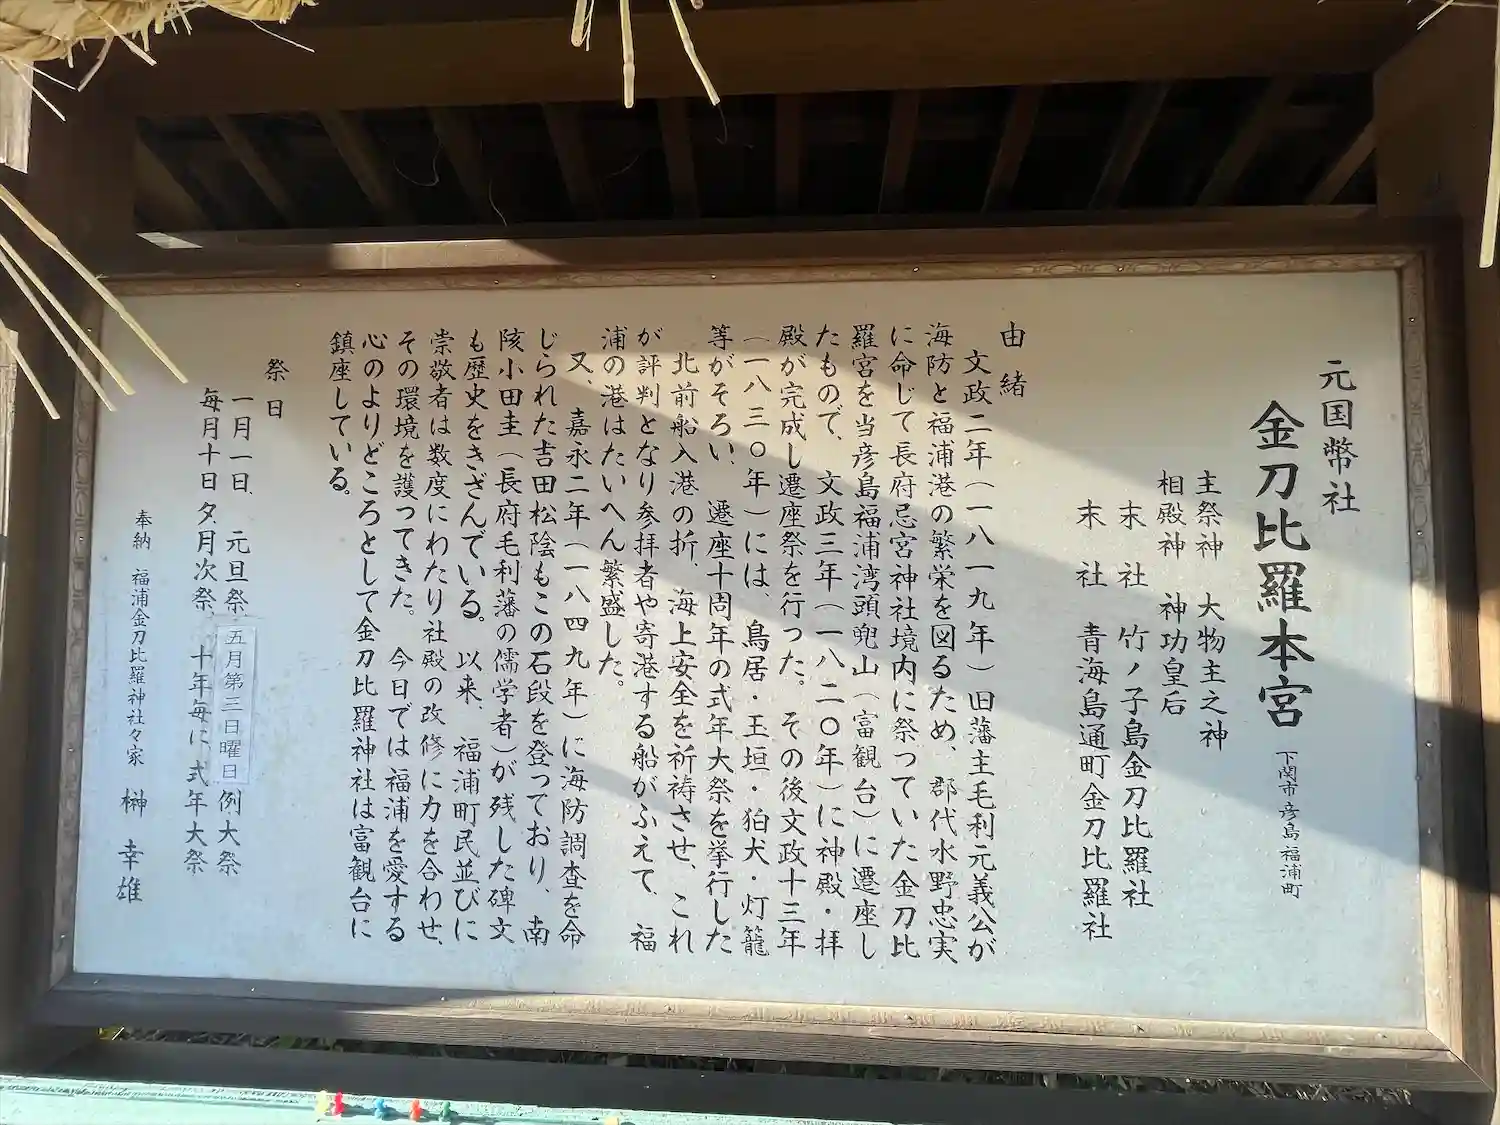 元国幣社
金刀比羅本宮 下関市彦島福浦町
主祭神 大物主之神
相殿神 神功皇后
末社 竹ノ子島金刀比羅社
末社 青海島通町金刀比羅社
由緒
文政二年(一八一九年)旧藩主毛利元義公が
海防と福浦港の繁栄を図るため、郡代水野忠実
に命じて長府忌宮神社境内に祭つていた金刀比
羅宮を当彦島福浦湾頭兜山(富観台)に遷座し
たもので、文政三年(一八二〇年)に神殿・拝
殿が完成し遷座祭を行った。その後文政十三年
(一八三〇年)には、鳥居・玉垣・狛犬・灯籠
等がそろい、遷座十周年の式年大祭を挙行した
北前船入港の折、海上安全を祈祷させ、これ
が評判となり参拝者や寄港する船がふえて、福
浦の港はたいへん繁盛した。
又、嘉永二年(一八四九年)に海防調査を命
じられた吉田松陰もこの石段を登っており、南
陔小田圭(長府毛利藩の儒学者)が残した碑文
も歴史をきざんでいる。以来、福浦町民並びに
崇敬者は数度にわたり社殿の改修に力を合わせ、
その環境を護ってきた。今日では福浦を愛する
心のよりどころとして金刀比羅神社は富観台に
鎮座している。
祭日
一月一日、元旦祭、五月第三日曜日例大祭
毎月十日夕、月次祭、十年毎に式年大祭
奉納 福浦金刀比羅神社々家 榊 幸雄